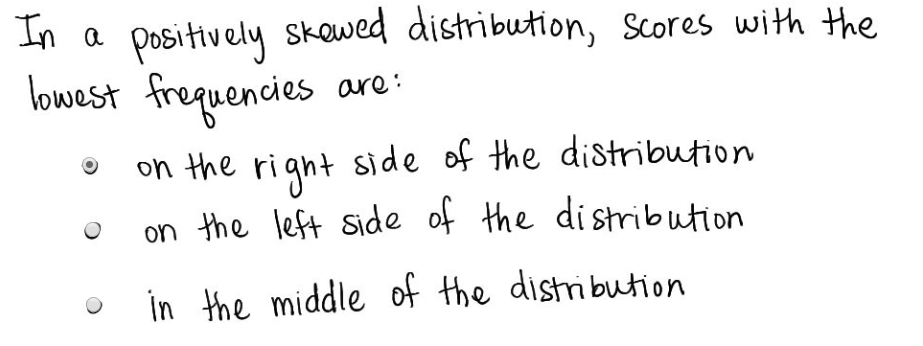 In a positively skewed distribution, scores with the
lowest frequencies are:
on the right side of the distribution
on the left side of the distribution
in the middle of the distribution